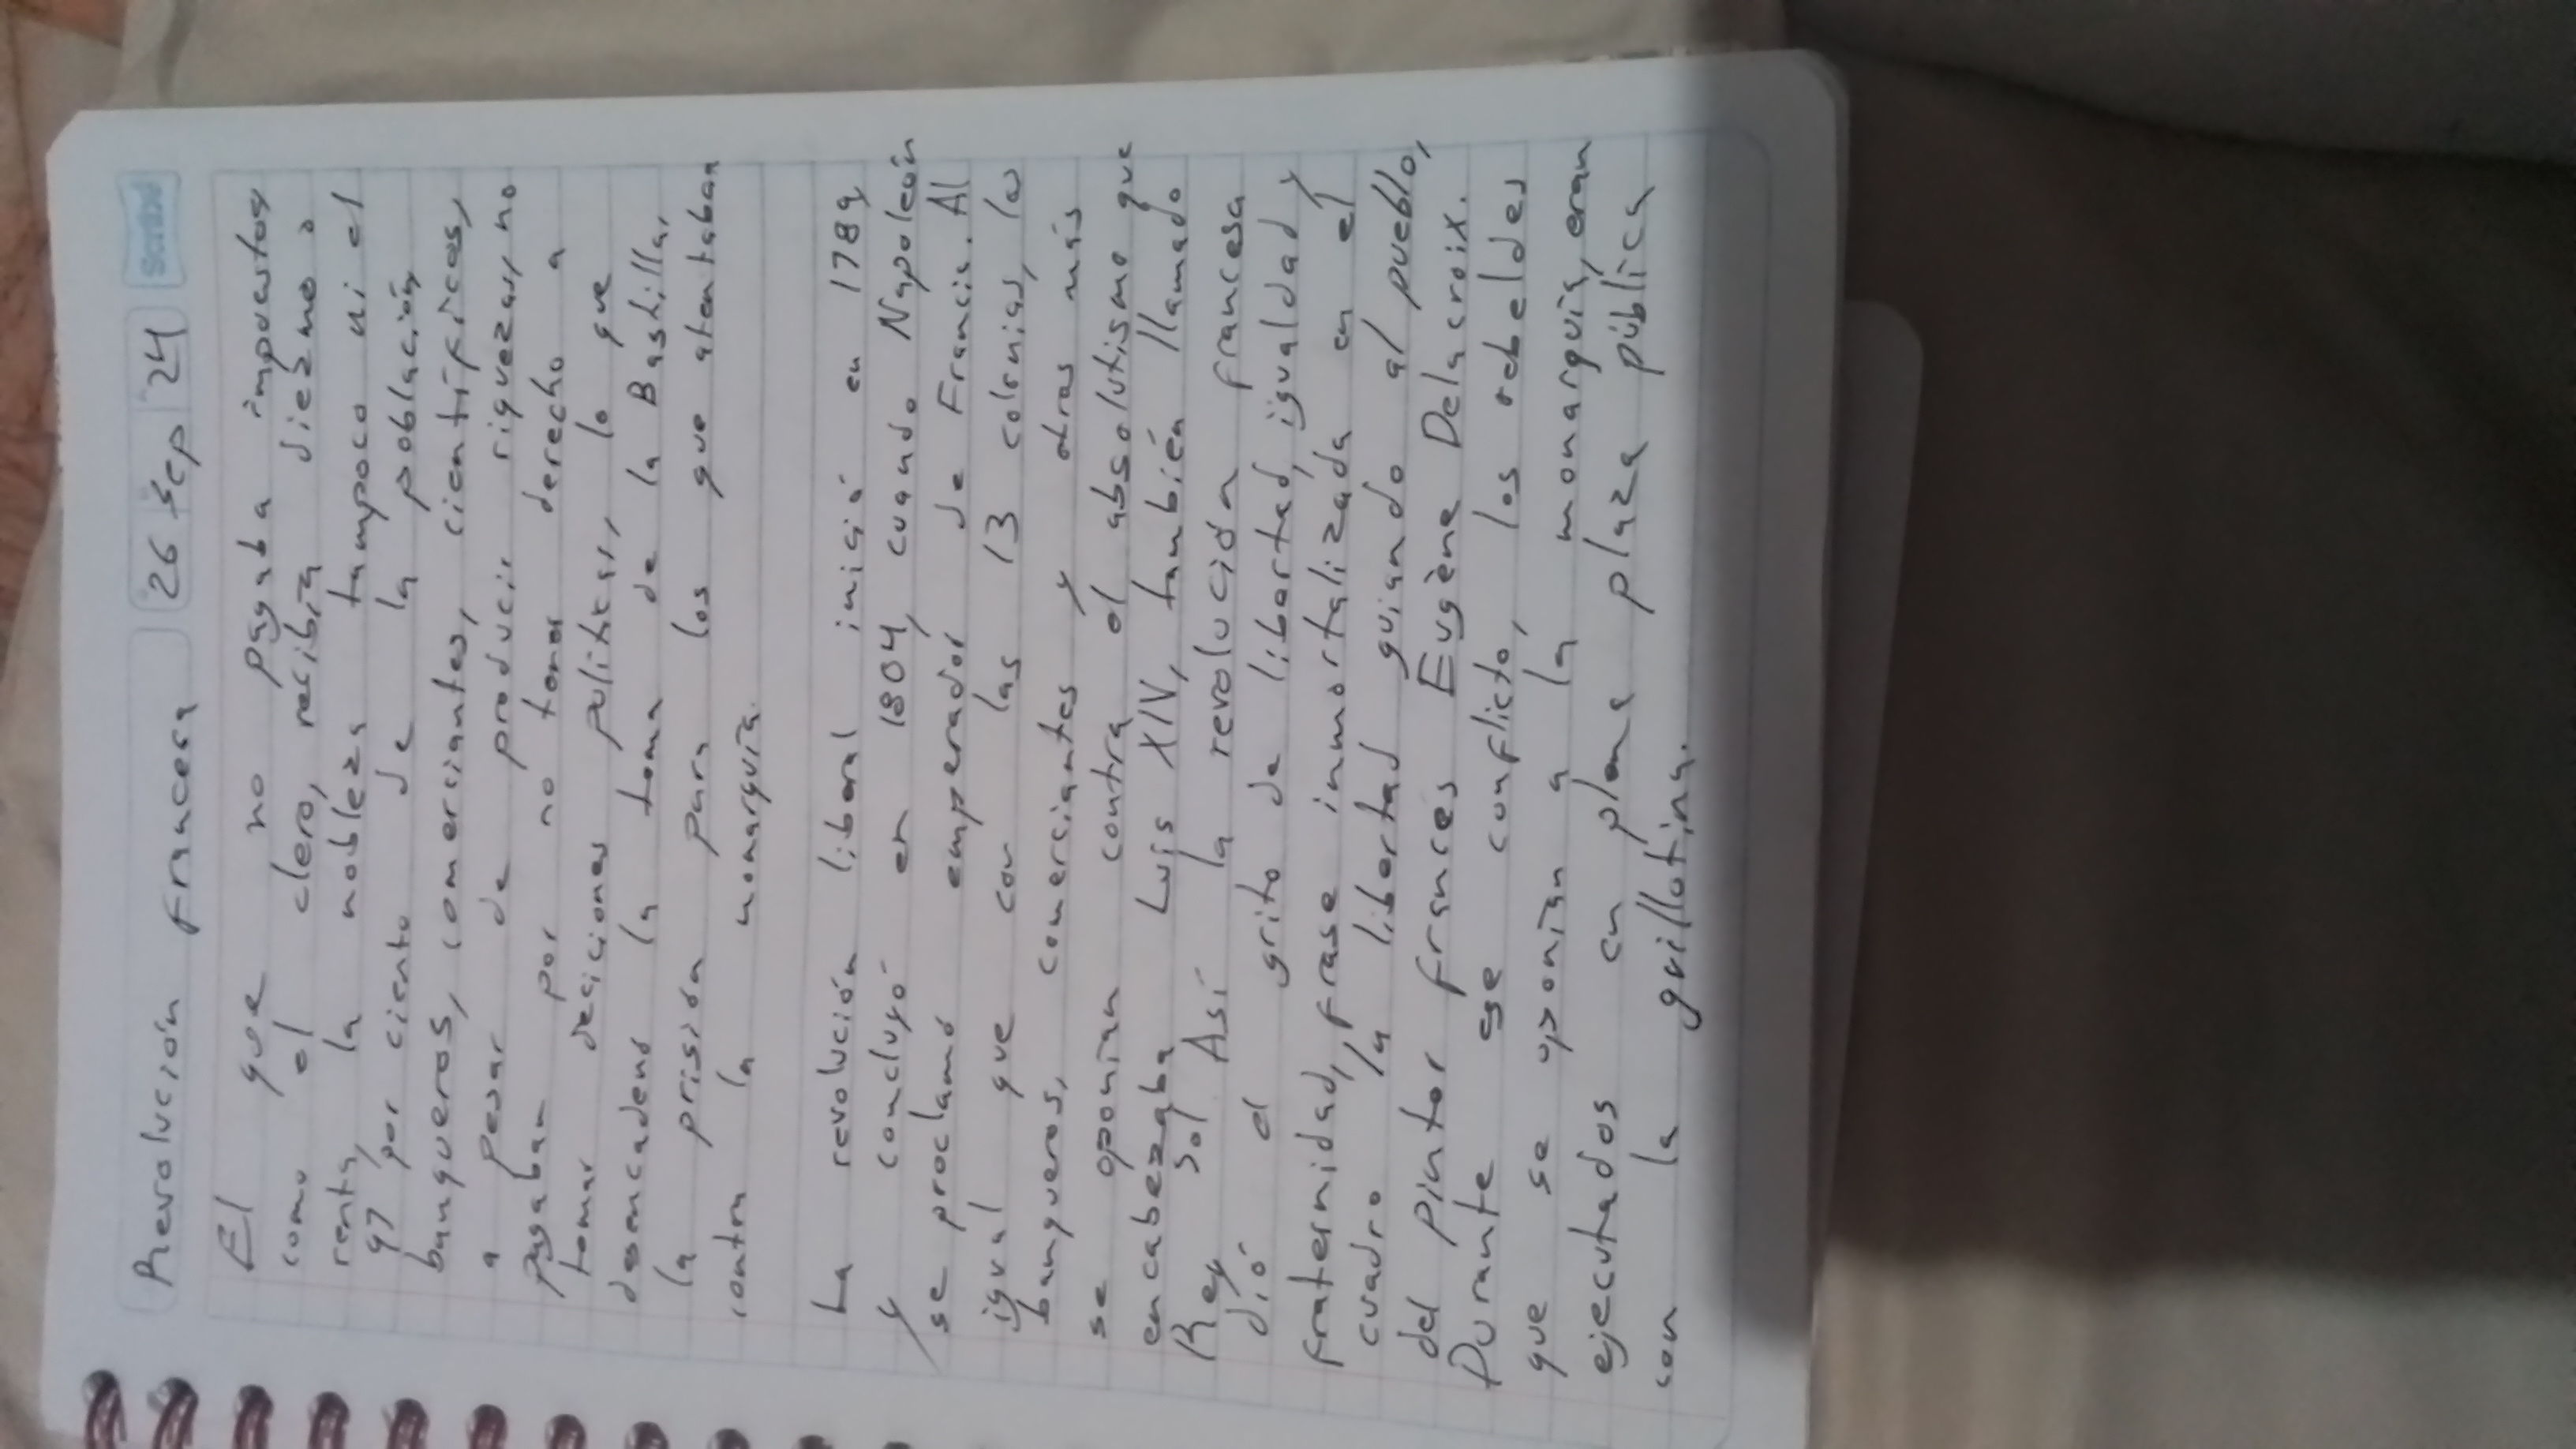 Revolución Francesa 26 Sep 24 Scribe
El que no pagaba impuestos
como el clero, recibía diezmo o
renta, la nobleza tampoco ni el
97 por ciento de la población
banqueros, comerciantes, científicos,
a pesar de producir riquezas, no
pagaban por no tener derecho a
tomar deciciones políticas, lo que
desencadenó la toma de la Bastilla,
la prisión para los que atentaban
contra la monarquía.
La revolución liberal inició en 1789
y concluyó en 1804, cuando Napoleón
se proclamó emperador de Francia. Al
igual que con las 13 colonias, los
banqueros, comerciantes y otros más
se oponían contra el absolutismo que
encabezaba Luis XIV, también llamado
Rey Sol Así la revolución francesa
dió el grito de libertad, igualdad y
fraternidad, frase inmortalizada en el
cuadro la libertad guiando al pueblo,
del pintor francés Eugène Delacroix.
Durante ese conflicto, los rebeldes
que se oponían a la monarquía, eran
ejecutados en plena plaza pública
con la guillotina.